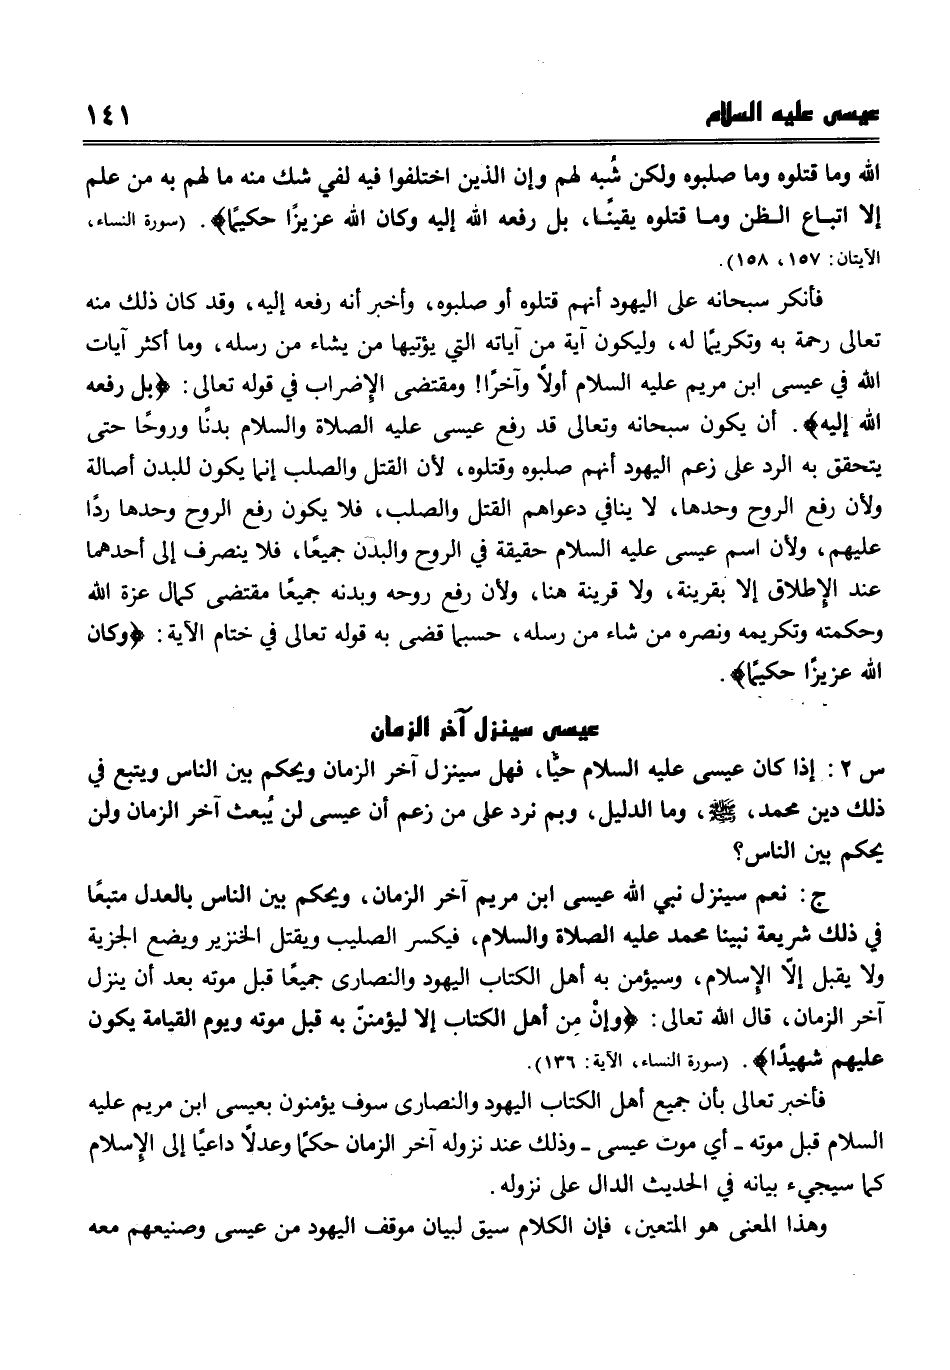 عيسى عليه السلام ١٤١
الله وما قتلوه وما صلبوه ولكن شُبه لهم وإن الذين اختلفوا فيه لفي شك منه ما لهم به من علم
إلا اتباع الظن وما قتلوه يقينًا، بل رفعه الله إليه وكان الله عزيزًا حكيمًا﴾. (سورة النساء،
الآيتان: ١٥٧، ١٥٨).
فأنكر سبحانه على اليهود أنهم قتلوه أو صلبوه، وأخبر أنه رفعه إليه، وقد كان ذلك منه
تعالى رحمة به وتكريمًا له، وليكون آية من آياته التي يؤتيها من يشاء من رسله، وما أكثر آيات
الله في عيسى ابن مريم عليه السلام أولاً وآخرًا! ومقتضى الإضراب في قوله تعالى: ﴿بل رفعه
الله إليه﴾. أن يكون سبحانه وتعالى قد رفع عيسى عليه الصلاة والسلام بدنًا وروحًا حتى
يتحقق به الرد على زعم اليهود أنهم صلبوه وقتلوه، لأن القتل والصلب إنما يكون للبدن أصالة
ولأن رفع الروح وحدها، لا ينافي دعواهم القتل والصلب، فلا يكون رفع الروح وحدها ردًا
عليهم، ولأن اسم عيسى عليه السلام حقيقة في الروح والبدن جميعًا، فلا ينصرف إلى أحدهما
عند الإطلاق إلا بقرينة، ولا قرينة هنا، ولأن رفع روحه وبدنه جميعًا مقتضى كمال عزة الله
وحكمته وتكريمه ونصره من شاء من رسله، حسبما قضى به قوله تعالى في ختام الآية: ﴿وكان
الله عزيزًا حكيمًا﴾.
عيسى سينزل آخر الزمان
س ٢: إذا كان عيسى عليه السلام حيًّا، فهل سينزل آخر الزمان ويحكم بين الناس ويتبع في
ذلك دين محمد، ﷺ، وما الدليل، وبم نرد على من زعم أن عيسى لن يُبعث آخر الزمان ولن
يحكم بين الناس؟
ج: نعم سينزل نبي الله عيسى ابن مريم آخر الزمان، ويحكم بين الناس بالعدل متبعًا
في ذلك شريعة نبينا محمد عليه الصلاة والسلام، فيكسر الصليب ويقتل الخنزير ويضع الجزية
ولا يقبل إلّا الإسلام، وسيؤمن به أهل الكتاب اليهود والنصارى جميعًا قبل موته بعد أن ينزل
آخر الزمان، قال الله تعالى: ﴿وإنْ مِن أهل الكتاب إلا ليؤمننّ به قبل موته ويوم القيامة يكون
عليهم شهيدًا﴾. (سورة النساء، الآية: ١٣٦).
فأخبر تعالى بأن جميع أهل الكتاب اليهود والنصارى سوف يؤمنون بعيسى ابن مريم عليه
السلام قبل موته - أي موت عيسى - وذلك عند نزوله آخر الزمان حكمًا وعدلًا داعيًا إلى الإسلام
كما سيجيء بيانه في الحديث الدال على نزوله.
وهذا المعنى هو المتعين، فإن الكلام سيق لبيان موقف اليهود من عيسى وصنيعهم معه